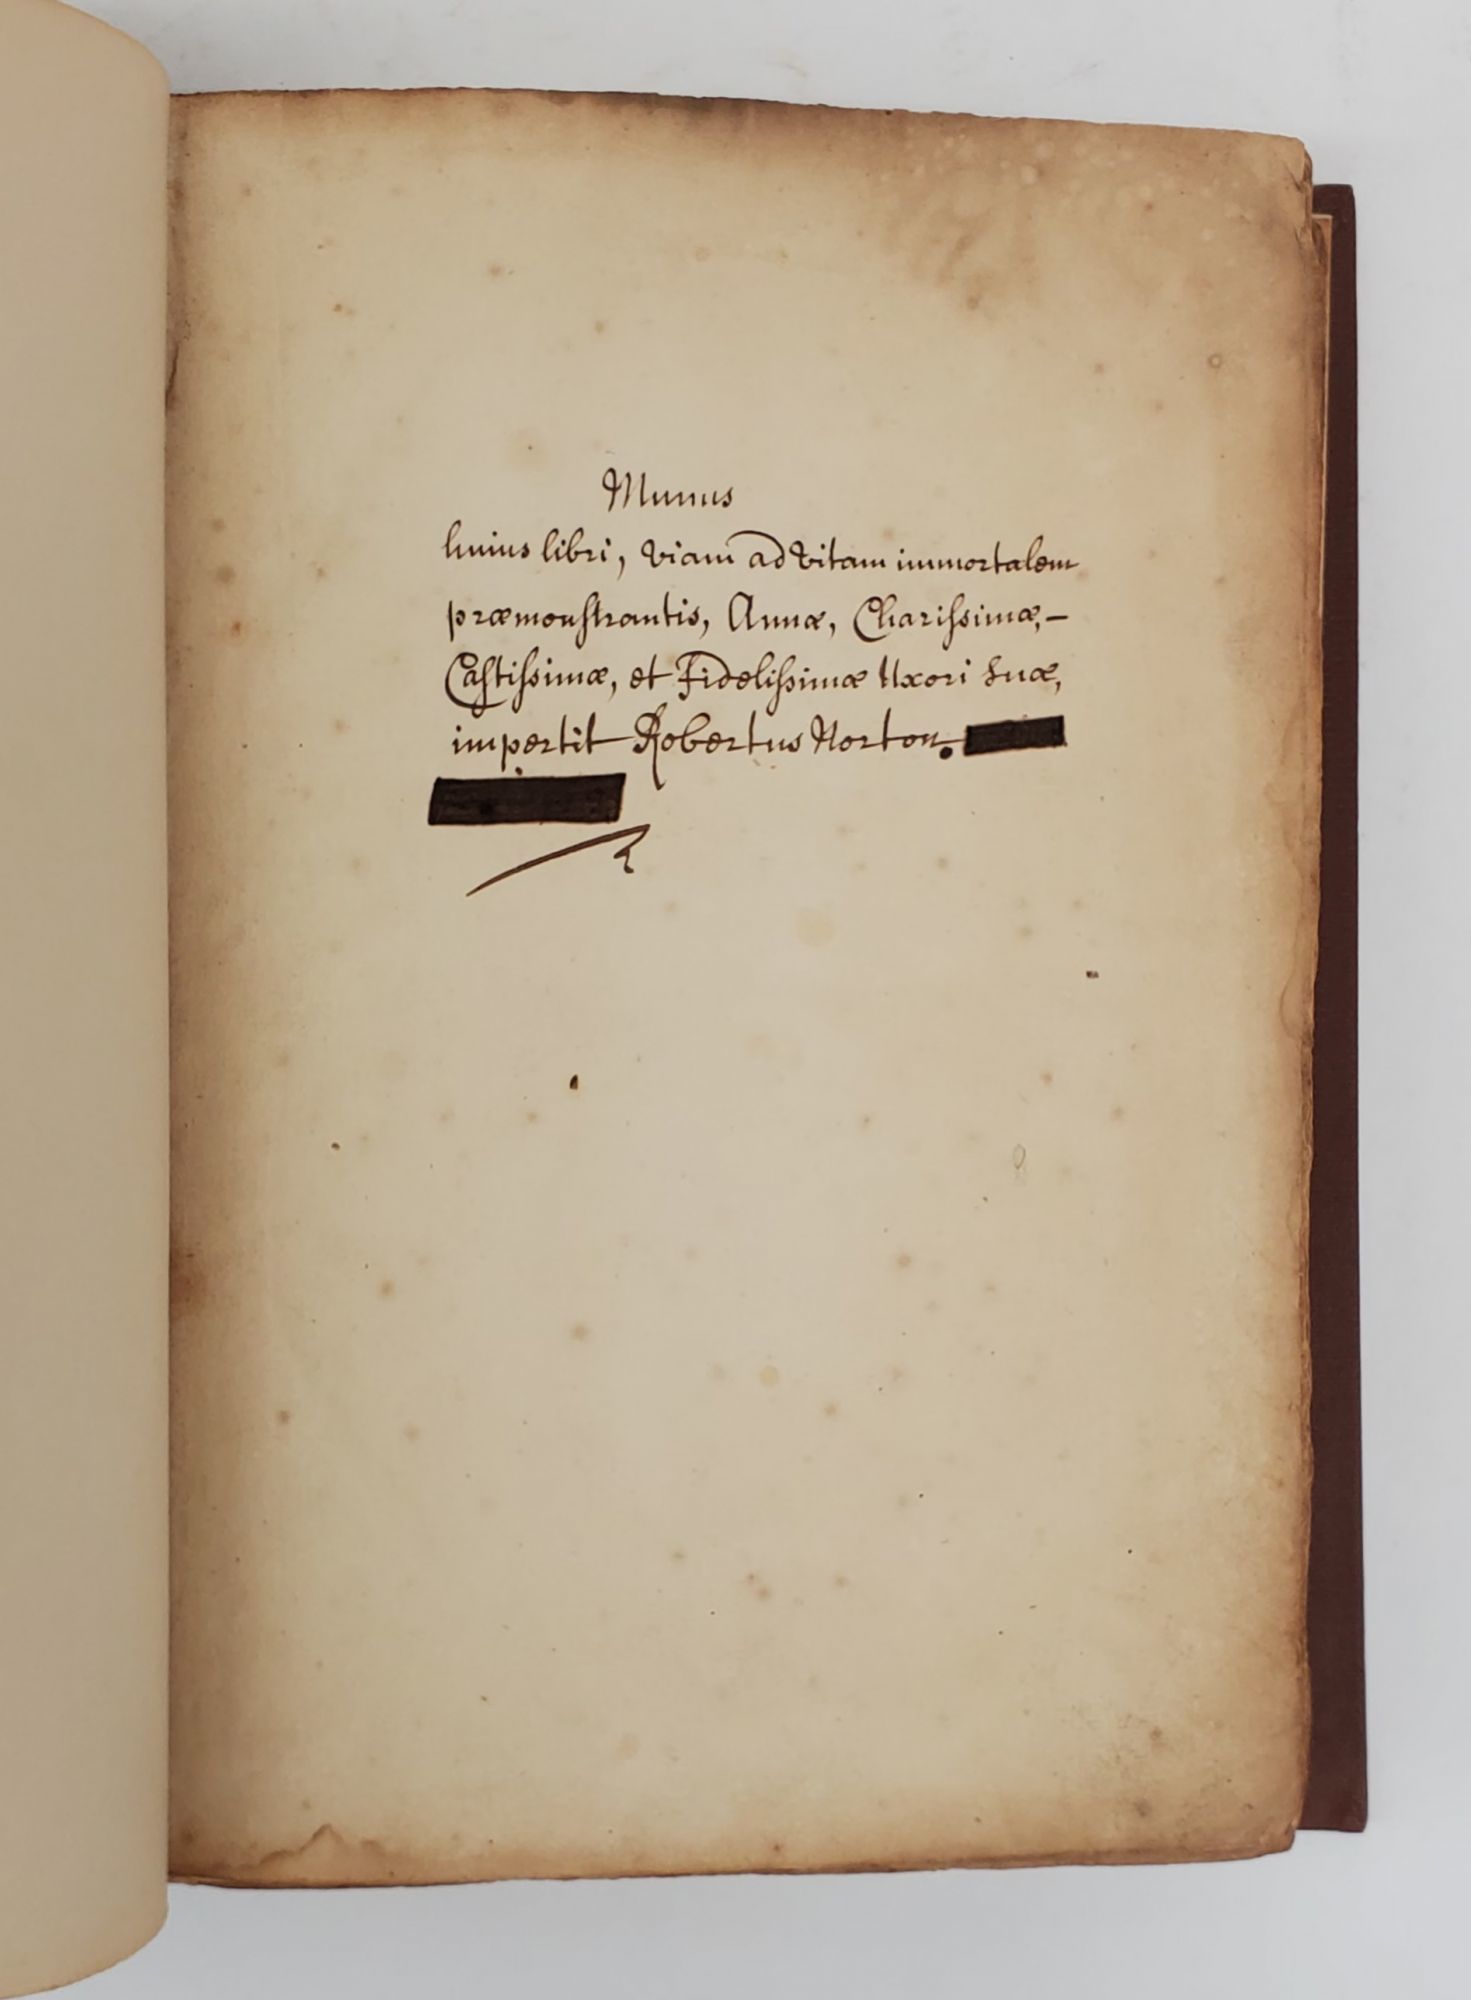 Munus
huius libri, viam ad vitam immortalem
præmonstrantis, Annæ, Charissimæ,–
Castissimæ, et Fidelissimæ Uxori suæ,
impertit Robertus Norton.